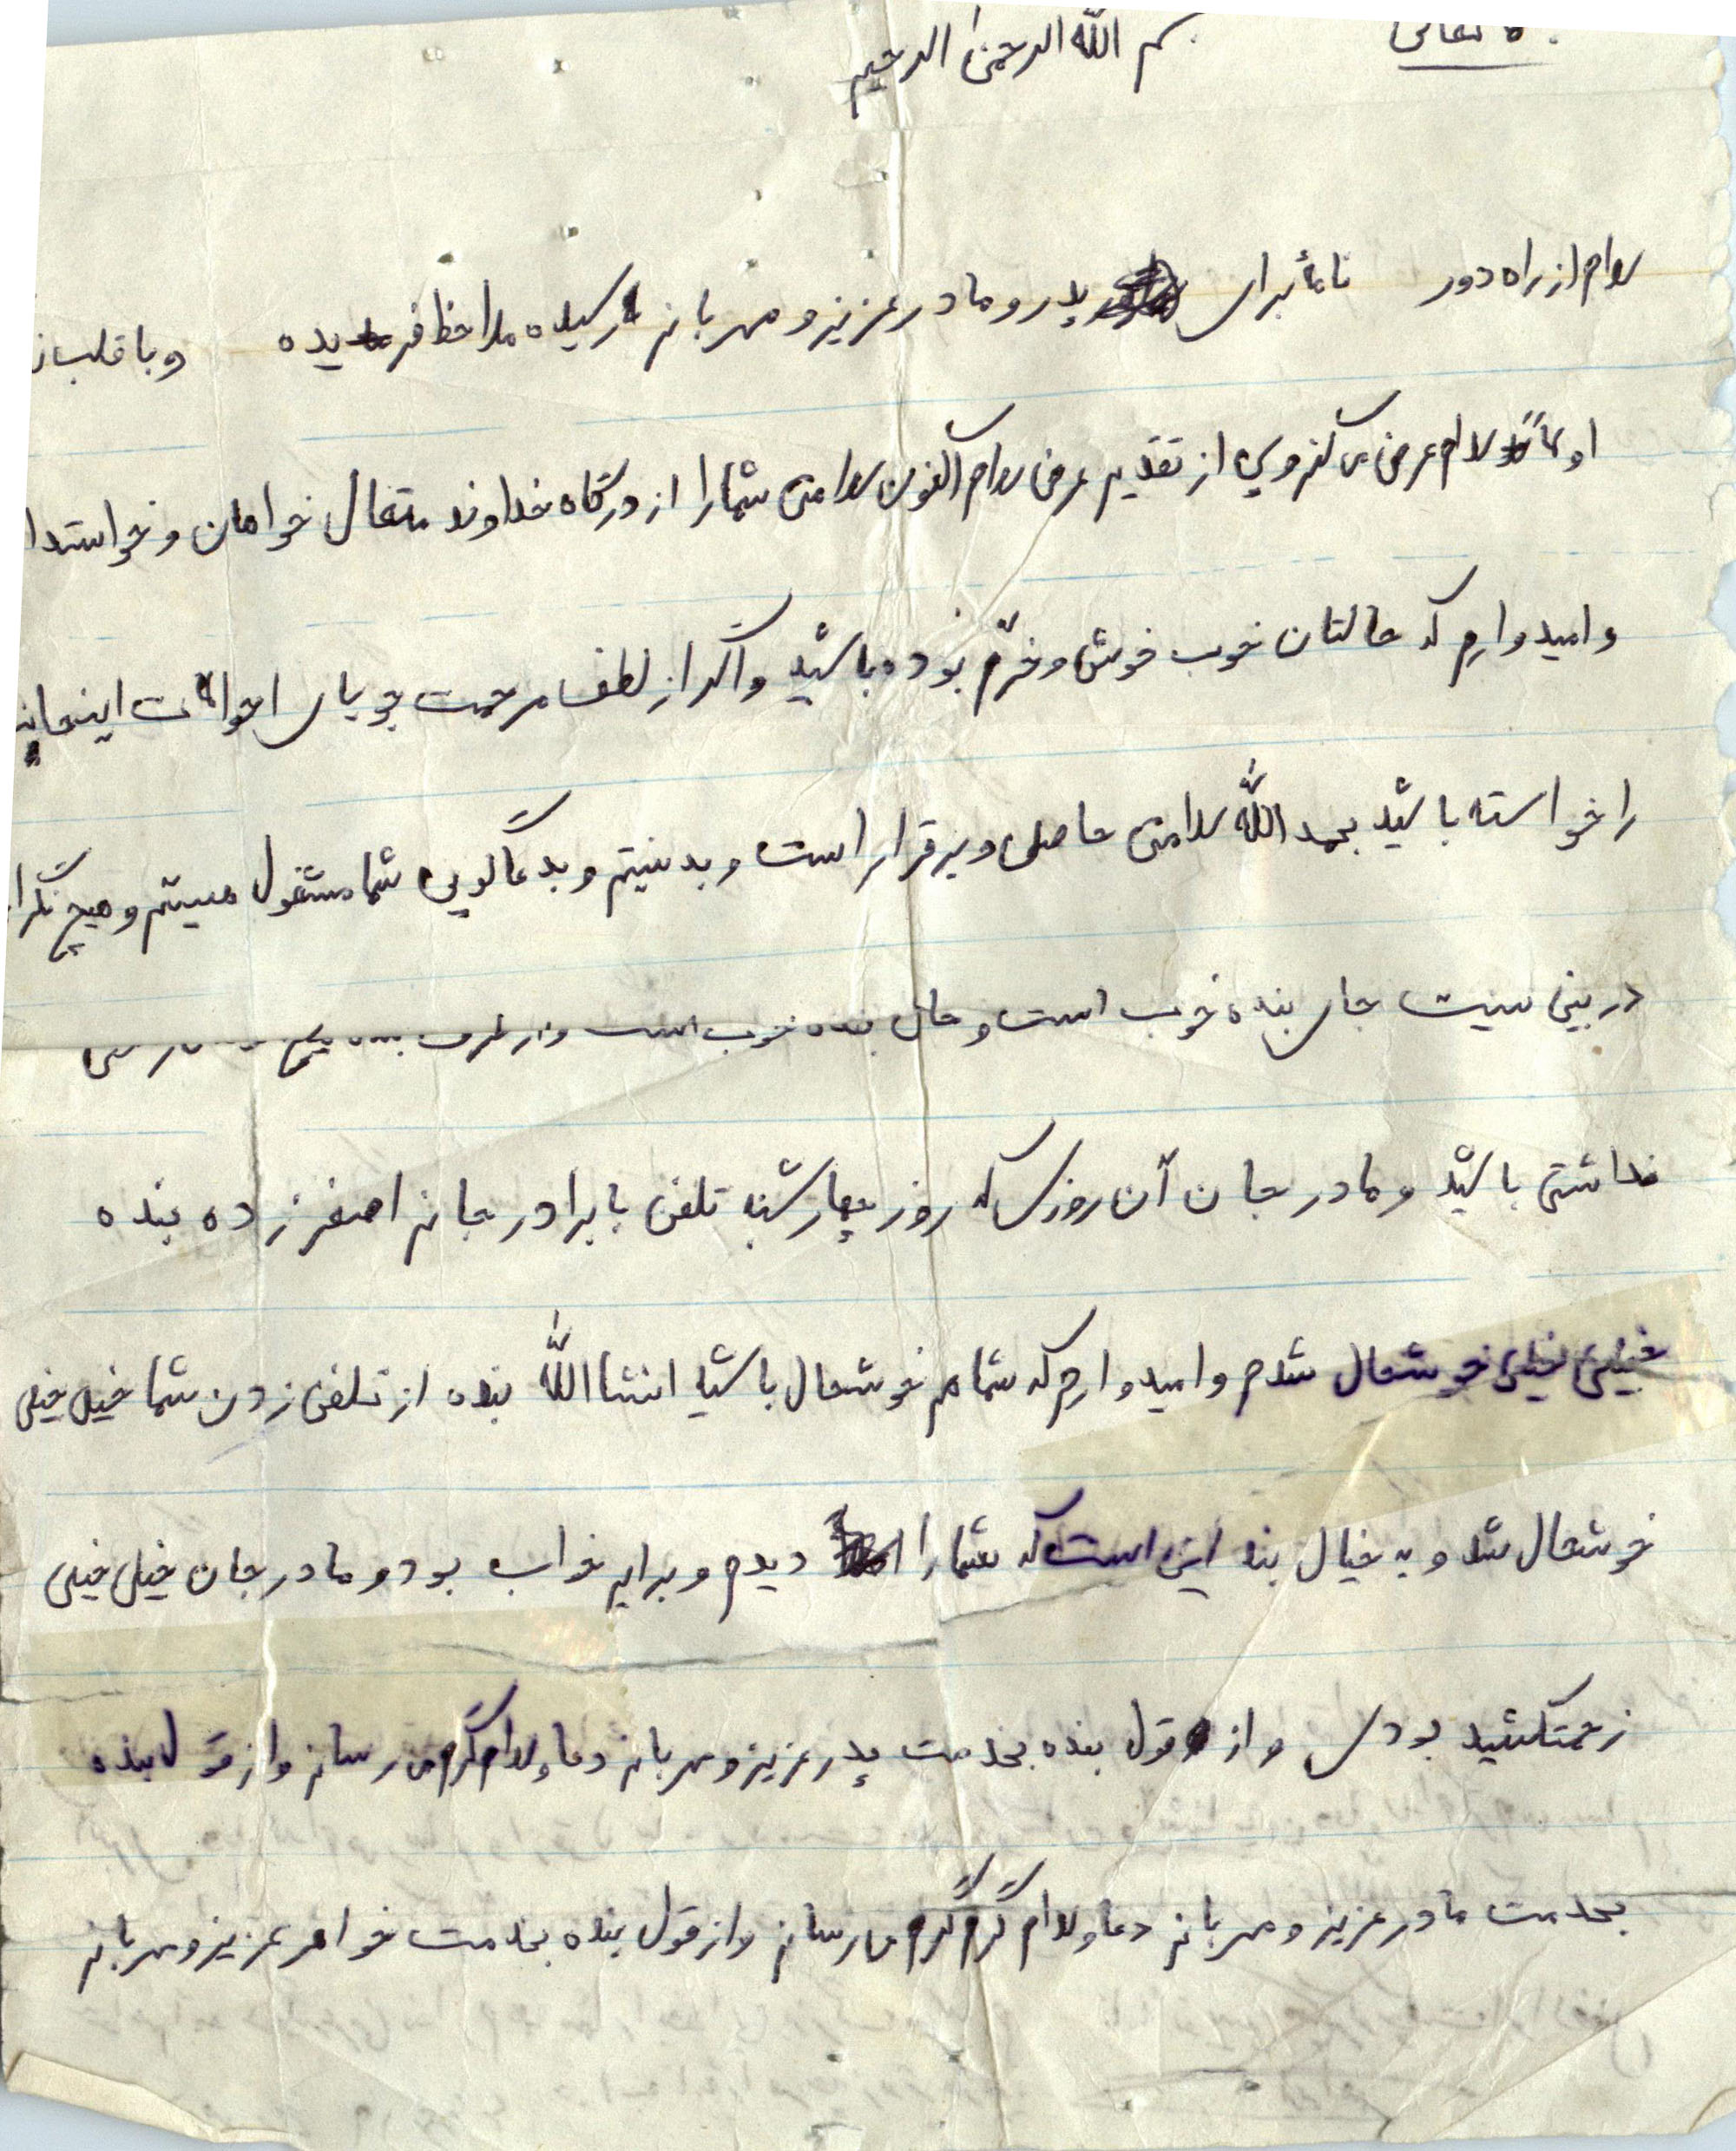 بسم الله الرحمن الرحیم
سلام از راه دور نامه برای پدر و مادر عزیز و مهربانم رسیده ملاحظ فرمایده و با قلب
اولاً سلام عرض می کنم و پس از تقدیم عرض سلام اکنون سلامتی شما را از درگاه خداوند متعال خواهان و خواستدا
و امیدوارم که حالتان خوب خوش و خرّم بوده باشید و اگر از لطف مرحمت جویای احوالات اینجانب
را خواسته باشید بحمد الله سلامتی حاصل و برقرار است و بد نیستم و بدعاگویی شما مشغول هستم و هیچ نگرا
در بین نیست جای بنده خوب است و حال بنده خوب است و از طرف بنده هیچ
نداشتی باشید و مادر جان آن روزی که روز چهارشنبه تلفن با برادر جانم اصغر زده بنده
خیلی خیلی خوشحال شدم و امیدوارم که شما هم خوشحال باشید انشاالله بنده از تلفن زدن شما خیلی خیلی
خوشحال شد و به خیال بنده این است که شما را دیدم و برایم خواب بود و مادر جان خیلی خیلی
زحمتکشید بودی و از قول بنده بخدمت پدر عزیز و مهربانم دعا و سلام گرم می رسانم و از قول بنده
بخدمت مادر عزیز و مهربانم دعا و سلام گرم گرم می رسانم و از قول بنده بخدمت خواهر عزیز و مهربانم